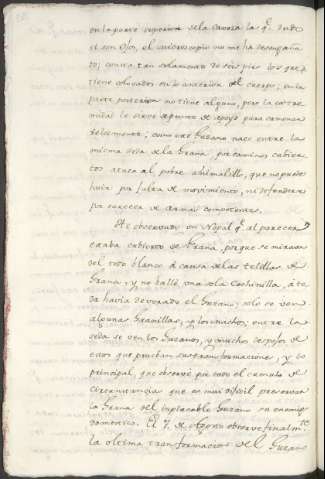 en la parte superior de la caveza la q.e dudo
si son ojos, el microscopio no me ha desengaña-
do; consta tan solamente de seis pies los que
tiene colocados en lo anterior del cuerpo; en la
parte posterior no tiene alguno, pero la extre-
midad le sirve de punto de apoyo para caminar
velozmente; como este Gusano nace entre la
misma seda de la Grana, por caminos cubier-
tos ataca al pobre animalillo, que no puede
huir por falta de movimiento, ni defenderse
por carecer de armas competentes.
He observado un Nopal q.e al parecer
estaba cubierto de Grana, porque se miraba
del todo blanco á causa de las telillas de
Grana, y no hallé una sola Cochinilla, á to-
da havia devorado el Gusano, solo se veen
algunas Granillas, y los machos; entre la
seda se ven los Gusanos, y muchos despojos de
estos que prueban sus transformaciones, y lo
principal, que observé por todo el cumulo de
circunstancias que es muy dificil preservar
la Grana del implacable Gusano su enemigo
domestico. El 7. de Agosto observé finalm.te
la ultima transformacion del Gusano